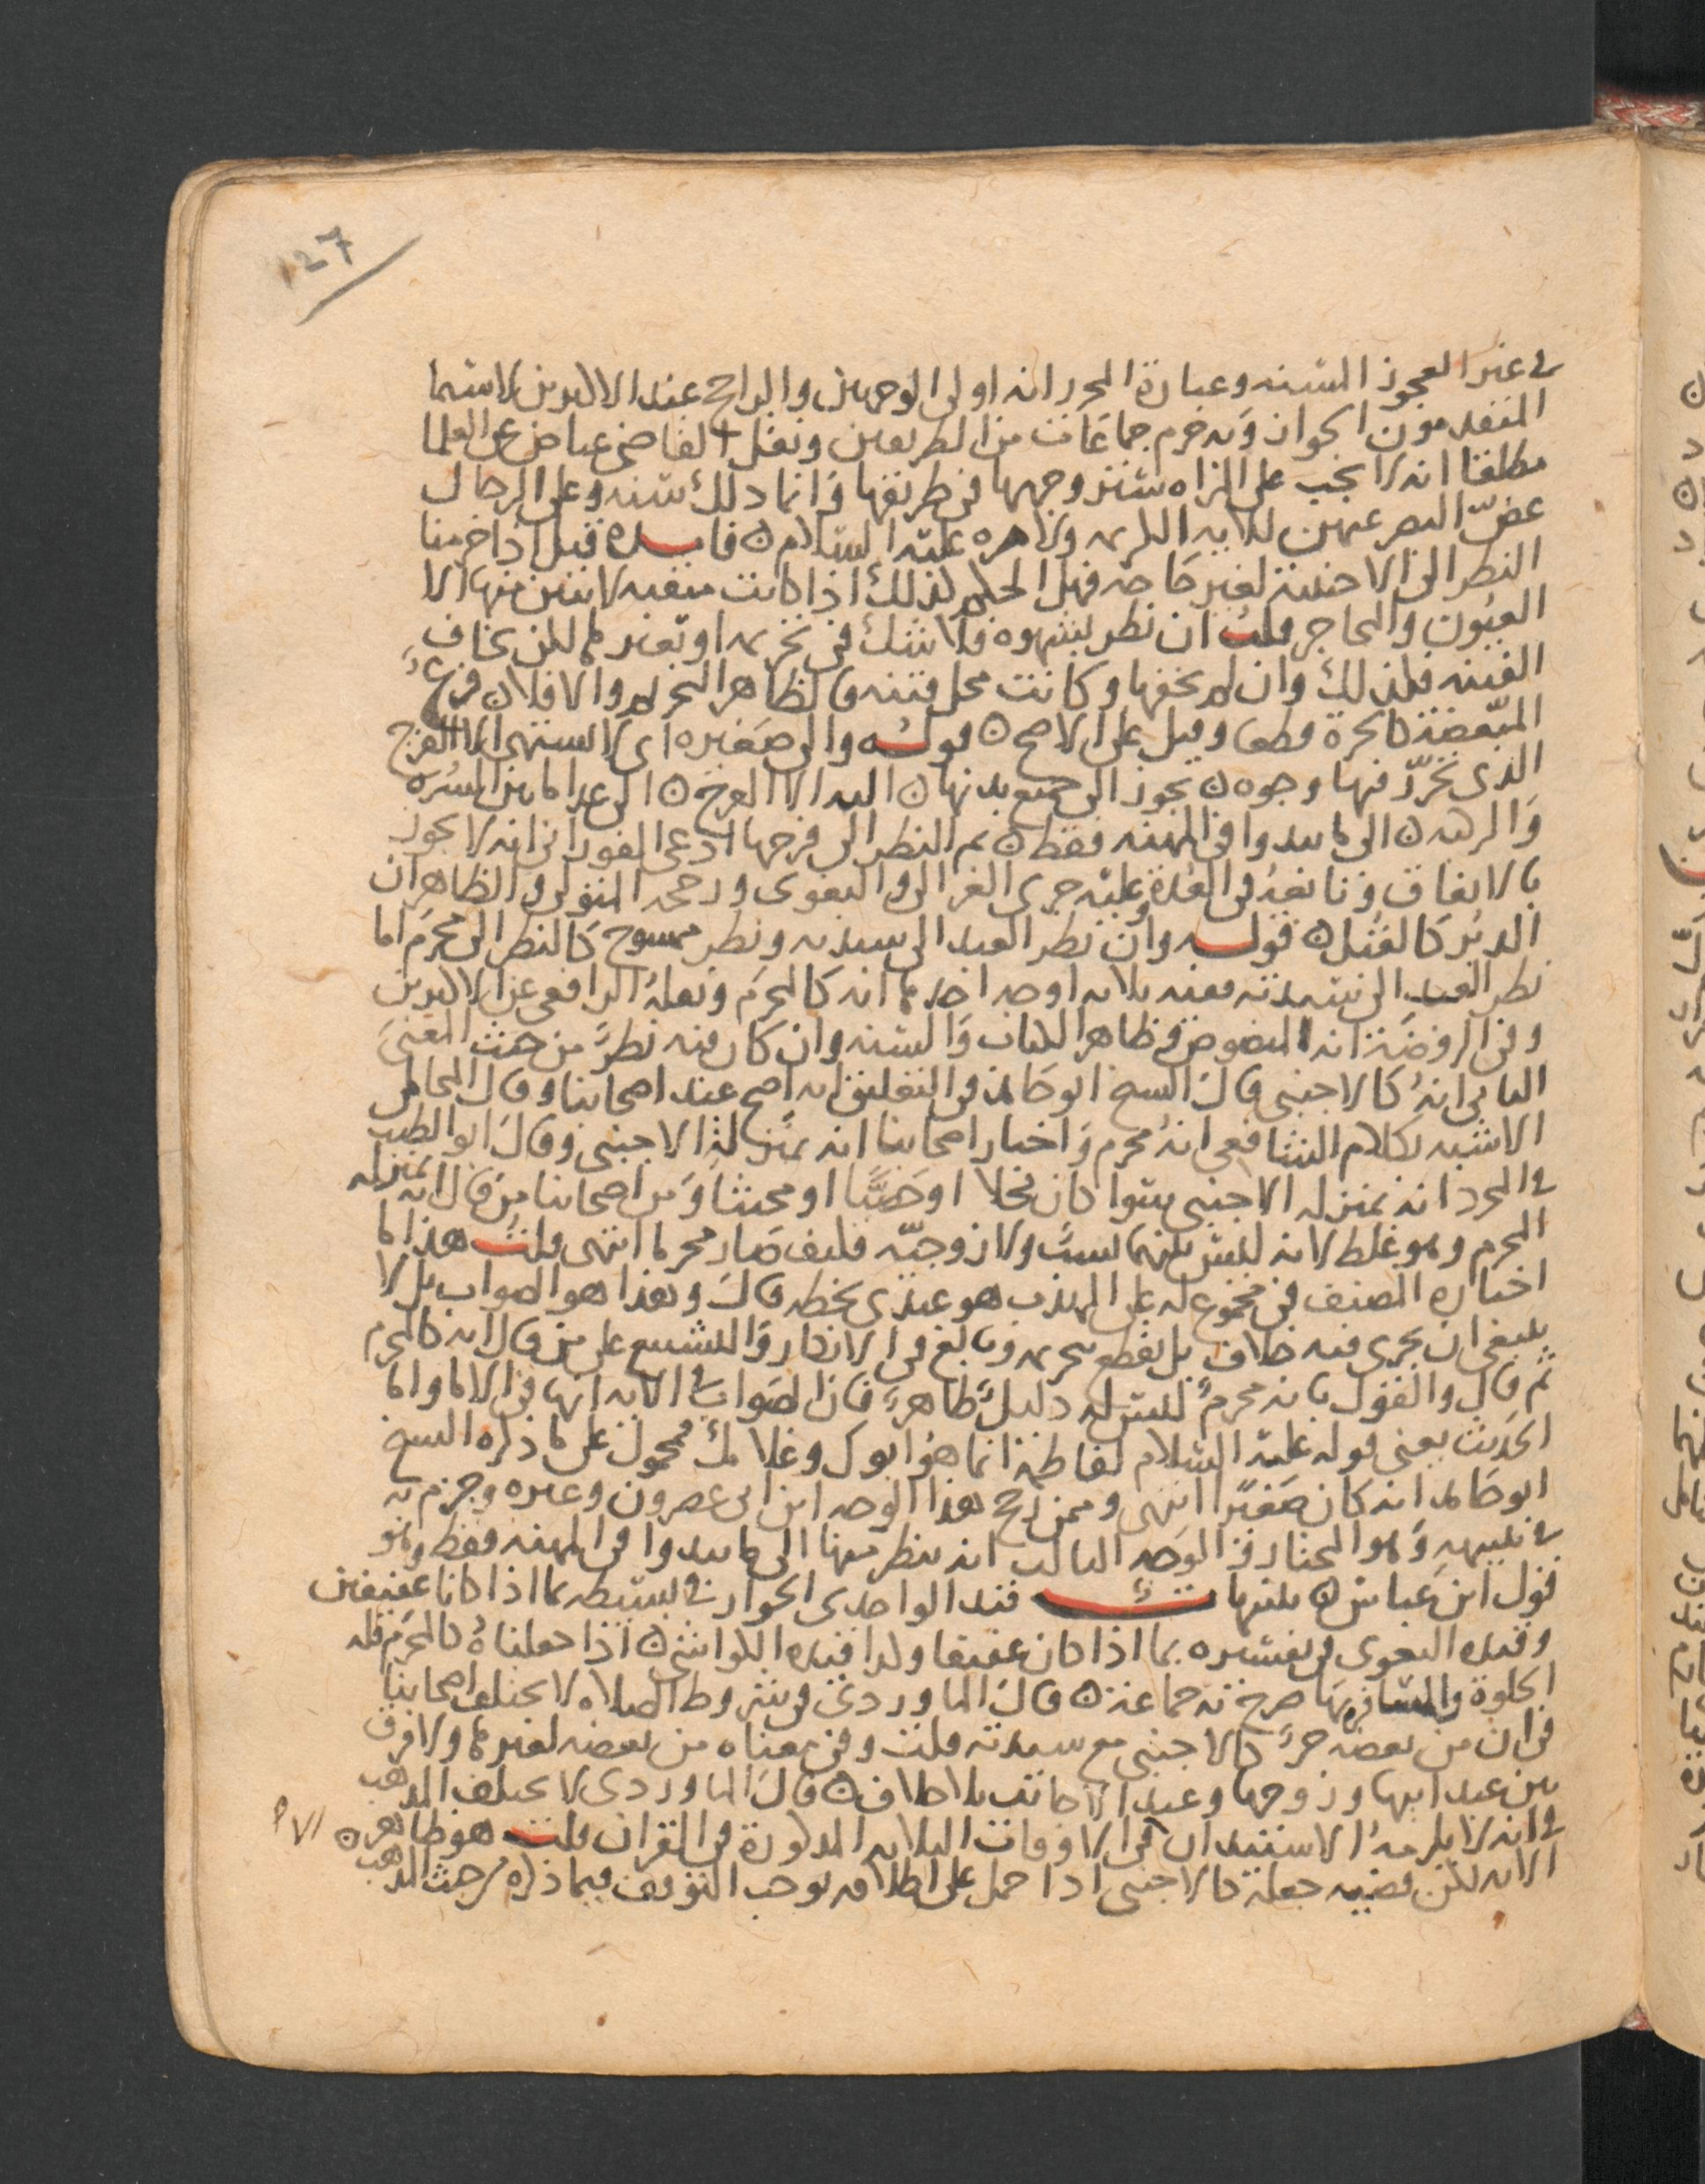 127
في غير العجوز المسنه وعبارة المحرر انه اولى الوجهين والراجح عند الاكثرين لا سيما
المتقدمون الجواز وبه جزم جماعات من الطريقين ونقل القاضي عياض عن العلما
مطلقا انه لا يجب على المراه ستر وجهها في طريقها وانما ذلك سنه وعلى الرجال
غض البصر عنهن للايه الكريمه ولامره عليه السلام فايده قيل اذا حرمنا
النظر الى الاجنبية لغير حاجه فهل الحكم كذلك اذا كانت منتقبه لا يتبين منها الا
العيون والمحاجر قلت ان نظر بشهوه فلا شك في تحريمه او بغيرها لكن يخاف
الفتنه فكذلك وان لم يخفها وكانت محل فتنه فالظاهر التحريم والا فلا فرع
المبعضة كالحرة قطعا وقيل على الاصح قوله والى صغيره اي لا تشتهى الا الفرج
الذي تحرر فيها وجوه يجوز الى جميع بدنها اليه الا الفرج الى غير ما بين السره
والركبه الى ما يبدوا في المهنه فقط ثم النظر الى فرجها ادعى الفوراني انه لا يجوز
بالاتفاق وتابعه في العدة وعليه جرى الغزالي والبغوي ورجحه المتولي والظاهر ان
الدبر كالقبل قوله وان نظر العبد الى سيدته ونظر ممسوح كالنظر الى محرم اما
نظر العبد الى سيدته ففيه ثلاثه اوجه احدها انه كالمحرم ونقله الرافعي عن الاكثرين
وفي الروضة انه المنصوص وظاهر الكتاب والسنه وان كان فيه نظر من حيث المعنى
الثاني انه كالاجنبي قال الشيخ ابو حامد في التعليق انه اصح عند اصحابنا وقال المحاملي
الاشبه بكلام الشافعي انه محرم واختار اصحابنا انه بمنزلة الاجنبي وقال ابو الطيب
في المجرد انه بمنزله الاجنبي سوا كان فحلا او خصيا او مخنثا ومن اصحابنا من قال انه بمنزله
المحرم وهو غلط لانه ليس بينهما نسب ولا زوجيه فكيف صار محرما انتهى قلت هذا ما
اختاره المصنف في مجموع له على المهذب هو عندي بخطه قال وهذا هو الصواب بل لا
ينبغي ان يجري فيه خلاف بل يقطع بتحريمه وبالغ في الانكار والتشنيع على من قال انه كالمحرم
ثم قال والقول بانه محرم ليس له دليل ظاهر فان الصواب في الايه انها في الاما واما
الحديث يعني قوله عليه السلام لفاطمة انما هو ابوك وغلامك محمول على ما ذكره الشيخ
ابو حامد انه كان صغيرا انتهى وممن رجح هذا الوجه ابن ابي عصرون وغيره وجزم به
في تنبيهه وهو المختار والوجه الثالث انه ينظر منها الى ما يبدوا في المهنه فقط وهو
قول ابن عباس تنبيهات قيد الواحدي الجواز في بسيطه بما اذا كانا عفيفين
وقيده البغوي في تفسيره بما اذا كان عفيفا وكذا قيده الكواشي اذا جعلناه كالمحرم فله
الخلوة والمسافرة بها صرح به جماعة قال الماوردي في شروط الصلاه لا يختلف اصحابنا
في ان من بعضه حر كالاجنبي مع سيدته قلت وفي معناه من بعضه لغيرها ولا فرق
بين عبد ابيها وزوجها وعبد الاجانب بلا خلاف قال الماوردي لا يختلف المذهب
في انه لا يلزمه الاستئذان الا في الاوقات الثلاثه المذكورة في القران قلت هو ظاهر
الايه لكن قضيه جعله كالاجنبي اذا حمل على اطلاقه يوجب التوقف فيما ذكره من حيث المذهب